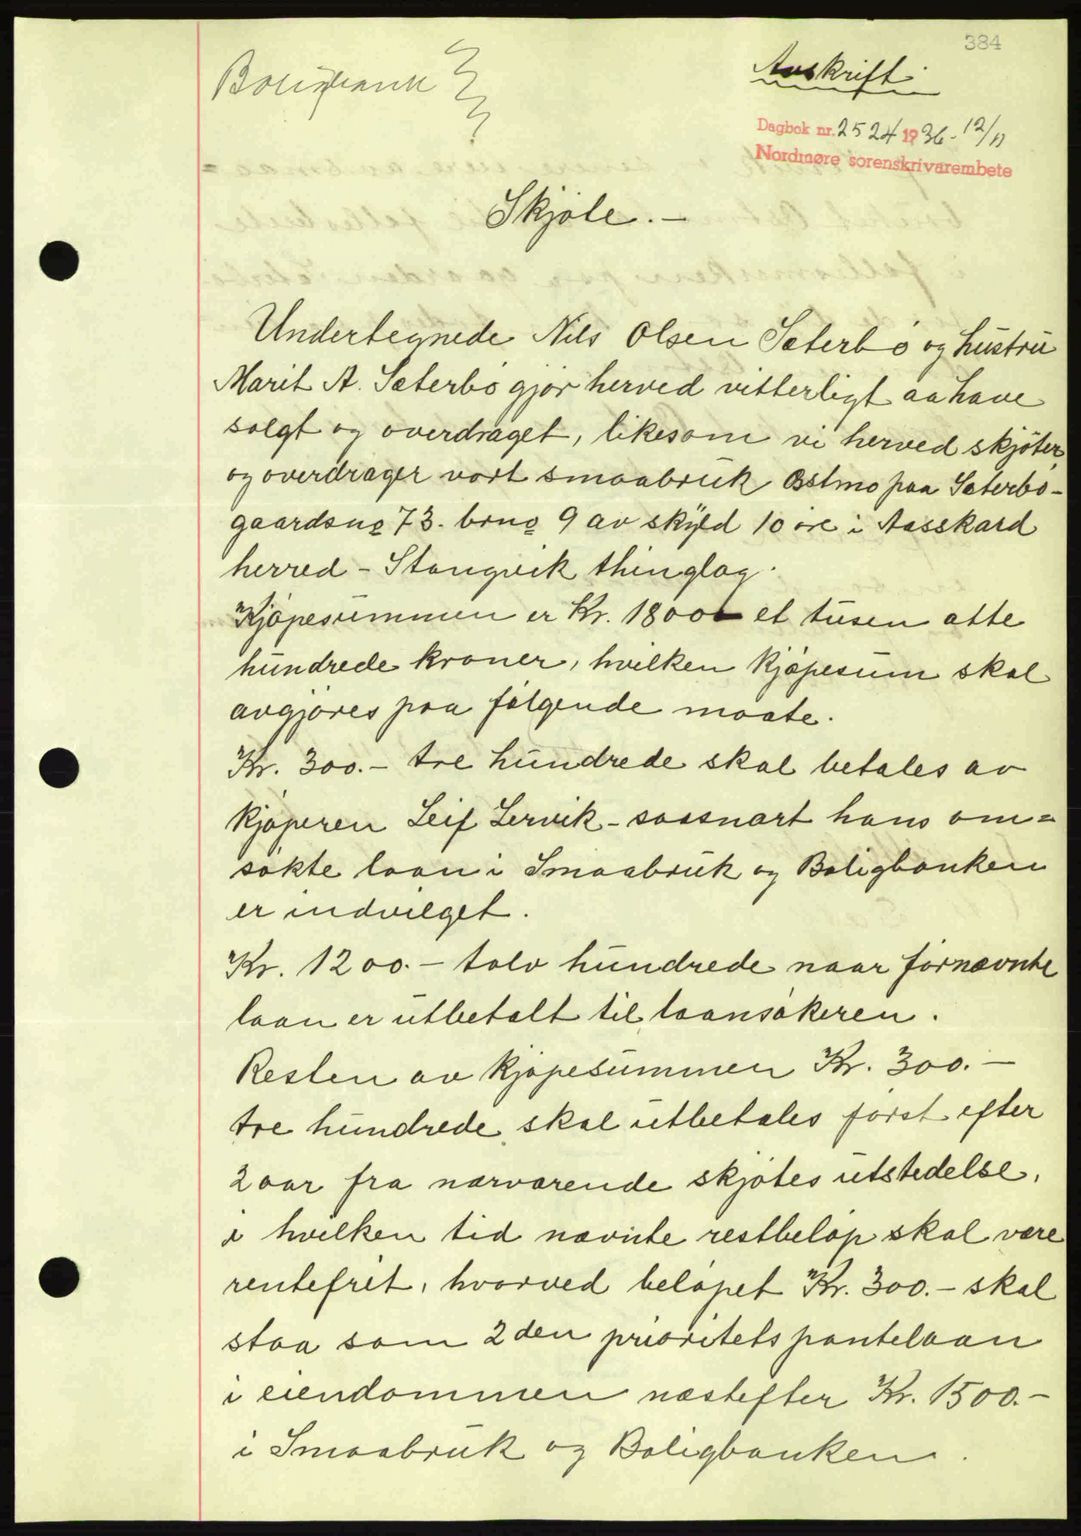 384
Boligbank
Avskrift.
Dagbok nr. 2524 1936 - 12/11
Nordmøre sorenskrivarembete
Skjöte. -
Undertegnede Nils Olsen Sæterbö og hustru
Marit A. Sæterbö gjör herved vitterligt aa have
solgt og overdraget, likesom vi herved skjöter,
og overdrager vort smaabruk Østmo paa Sæterbö-
gaardsno 73. brno 9 av skyld 10 öre i Aasskard
herred - Stangvik thinglag.
Kjöpesummen er Kr. 1800 et tusen otte
hundrede kroner, hvilken kjöpesum skal
avgjöres paa fölgende maate.
Kr. 300.- tre hundrede skal betales av
kjöperen Leif Lervik - saasnart hans om=
sökte laan i Smaabruk og Boligbanken
er indvilget.
Kr. 1200.- tolv hundrede naar fornævnte
laan er utbetalt til laansökeren.
Resten av kjöpesummen Kr. 300.-
tre hundrede skal utbetales först efter
2 aar fra nærværende skjötes utstedelse,
i hvilken tid nævnte restbelöp skal være
rentefrit, hvorved belöpet Kr. 300.- skal
staa som 2den prioritets pantelaan
i eiendommen næstefter Kr. 1500.-
i Smaabruk og Boligbanken.